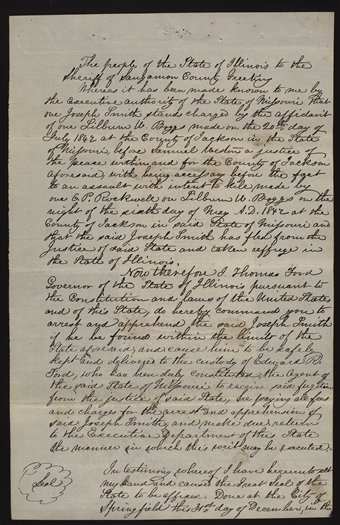 The people of the State of Illinois to the
Sheriff of Sangamon County Greeting
Whereas it has been made known to me by
the Executive authority of the State of Missouri that
one Joseph Smith stands charged by the affidavit
of one Lilburn W. Boggs made on the 20th day of
July 1842 at the County of Jackson in the State
of Missouri, before Samuel Weston a justice of
the peace within and for the County of Jackson
aforesaid, with being accessary before the fact
to an assault with intent to kill made by
one O P. Rockwell on Lilburn W. Boggs on the
night of the sixth day of May A.D. 1842 at the
County of Jackson in said State of Missouri and
that the said Joseph Smith has fled from the
Justice of said State and taken refuge in
the State of Illinois.
Now therefore I Thomas Ford
Governor of the State of Illinois pursuant to
the Constitution and laws of the United States
and of this State, do hereby command you to
arrest and apprehend the said Joseph Smith
if he be found within the limits of the
State aforesaid, and cause him to be safely
kept and delivered to the custody of Edward R.
Ford, who has been duly constituted the Agent of
the said State of Missouri to receive said fugitive
from the justice of said State, he paying all fees
and charges for the arrest and apprehension of
said Joseph Smith, and make due return
to the Executive Department of this State
the manner in which this writ may be executed.
Seal
In testimony whereof I have hereunto set
my hand and caused the Great Seal of the
State to be affixed. Done at the City of
Springfield this 31st day of December, in the